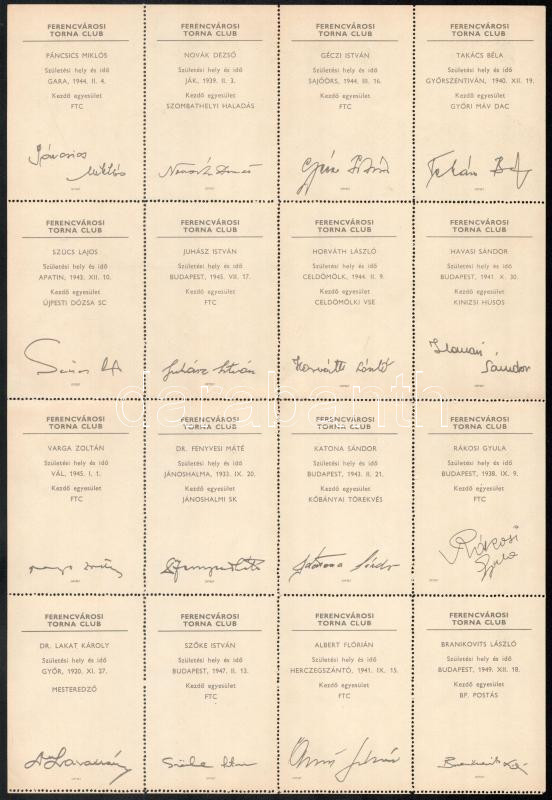 FERENCVÁROSI
TORNA CLUB
PÁNCSICS MIKLÓS
Születési hely és idő
GARA, 1944. II. 4.
Kezdő egyesület
FTC
Páncsics
Miklós
FERENCVÁROSI
TORNA CLUB
NOVÁK DEZSŐ
Születési hely és idő
JÁK, 1939. II. 3.
Kezdő egyesület
SZOMBATHELYI HALADÁS
Novák Dezső
FERENCVÁROSI
TORNA CLUB
GÉCZI ISTVÁN
Születési hely és idő
SAJÓÖRS, 1944. III. 16.
Kezdő egyesület
FTC
FERENCVÁROSI
TORNA CLUB
TAKÁCS BÉLA
Születési hely és idő
GYŐRSZENTIVÁN, 1940. XII. 19.
Kezdő egyesület
GYŐRI MÁV DAC
FERENCVÁROSI
TORNA CLUB
SZŰCS LAJOS
Születési hely és idő
APATIN, 1943. XII. 10.
Kezdő egyesület
ÚJPESTI DÓZSA SC
FERENCVÁROSI
TORNA CLUB
JUHÁSZ ISTVÁN
Születési hely és idő
BUDAPEST, 1945. VII. 17.
Kezdő egyesület
FTC
Juhász István
FERENCVÁROSI
TORNA CLUB
HORVÁTH LÁSZLÓ
Születési hely és idő
CELDÖMÖLK, 1944. II. 9.
Kezdő egyesület
CELDÖMÖLKI VSE
Horváth László
FERENCVÁROSI
TORNA CLUB
HAVASI SÁNDOR
Születési hely és idő
BUDAPEST, 1941. X. 30.
Kezdő egyesület
KINIZSI HÚSOS
Havasi
Sándor
darabanth
FERENCVÁROSI
TORNA CLUB
VARGA ZOLTÁN
Születési hely és idő
VÁL, 1945. I. 1.
Kezdő egyesület
FTC
FERENCVÁROSI
TORNA CLUB
DR. FENYVESI MÁTÉ
Születési hely és idő
JÁNOSHALMA, 1933. IX. 20.
Kezdő egyesület
JÁNOSHALMI SK
FERENCVÁROSI
TORNA CLUB
KATONA SÁNDOR
Születési hely és idő
BUDAPEST, 1943. II. 21.
Kezdő egyesület
KŐBÁNYAI TÖREKVÉS
Katona Sándor
FERENCVÁROSI
TORNA CLUB
RÁKOSI GYULA
Születési hely és idő
BUDAPEST, 1938. IX. 9.
Kezdő egyesület
FTC
Rákosi
Gyula
FERENCVÁROSI
TORNA CLUB
DR. LAKAT KÁROLY
Születési hely és idő
GYŐR, 1920. XI. 27.
MESTEREDZŐ
FERENCVÁROSI
TORNA CLUB
SZŐKE ISTVÁN
Születési hely és idő
BUDAPEST, 1947. II. 13.
Kezdő egyesület
FTC
FERENCVÁROSI
TORNA CLUB
ALBERT FLÓRIÁN
Születési hely és idő
HERCZEGSZÁNTÓ, 1941. IX. 15.
Kezdő egyesület
FTC
FERENCVÁROSI
TORNA CLUB
BRANIKOVITS LÁSZLÓ
Születési hely és idő
BUDAPEST, 1949. XII. 18.
Kezdő egyesület
BP. POSTÁS